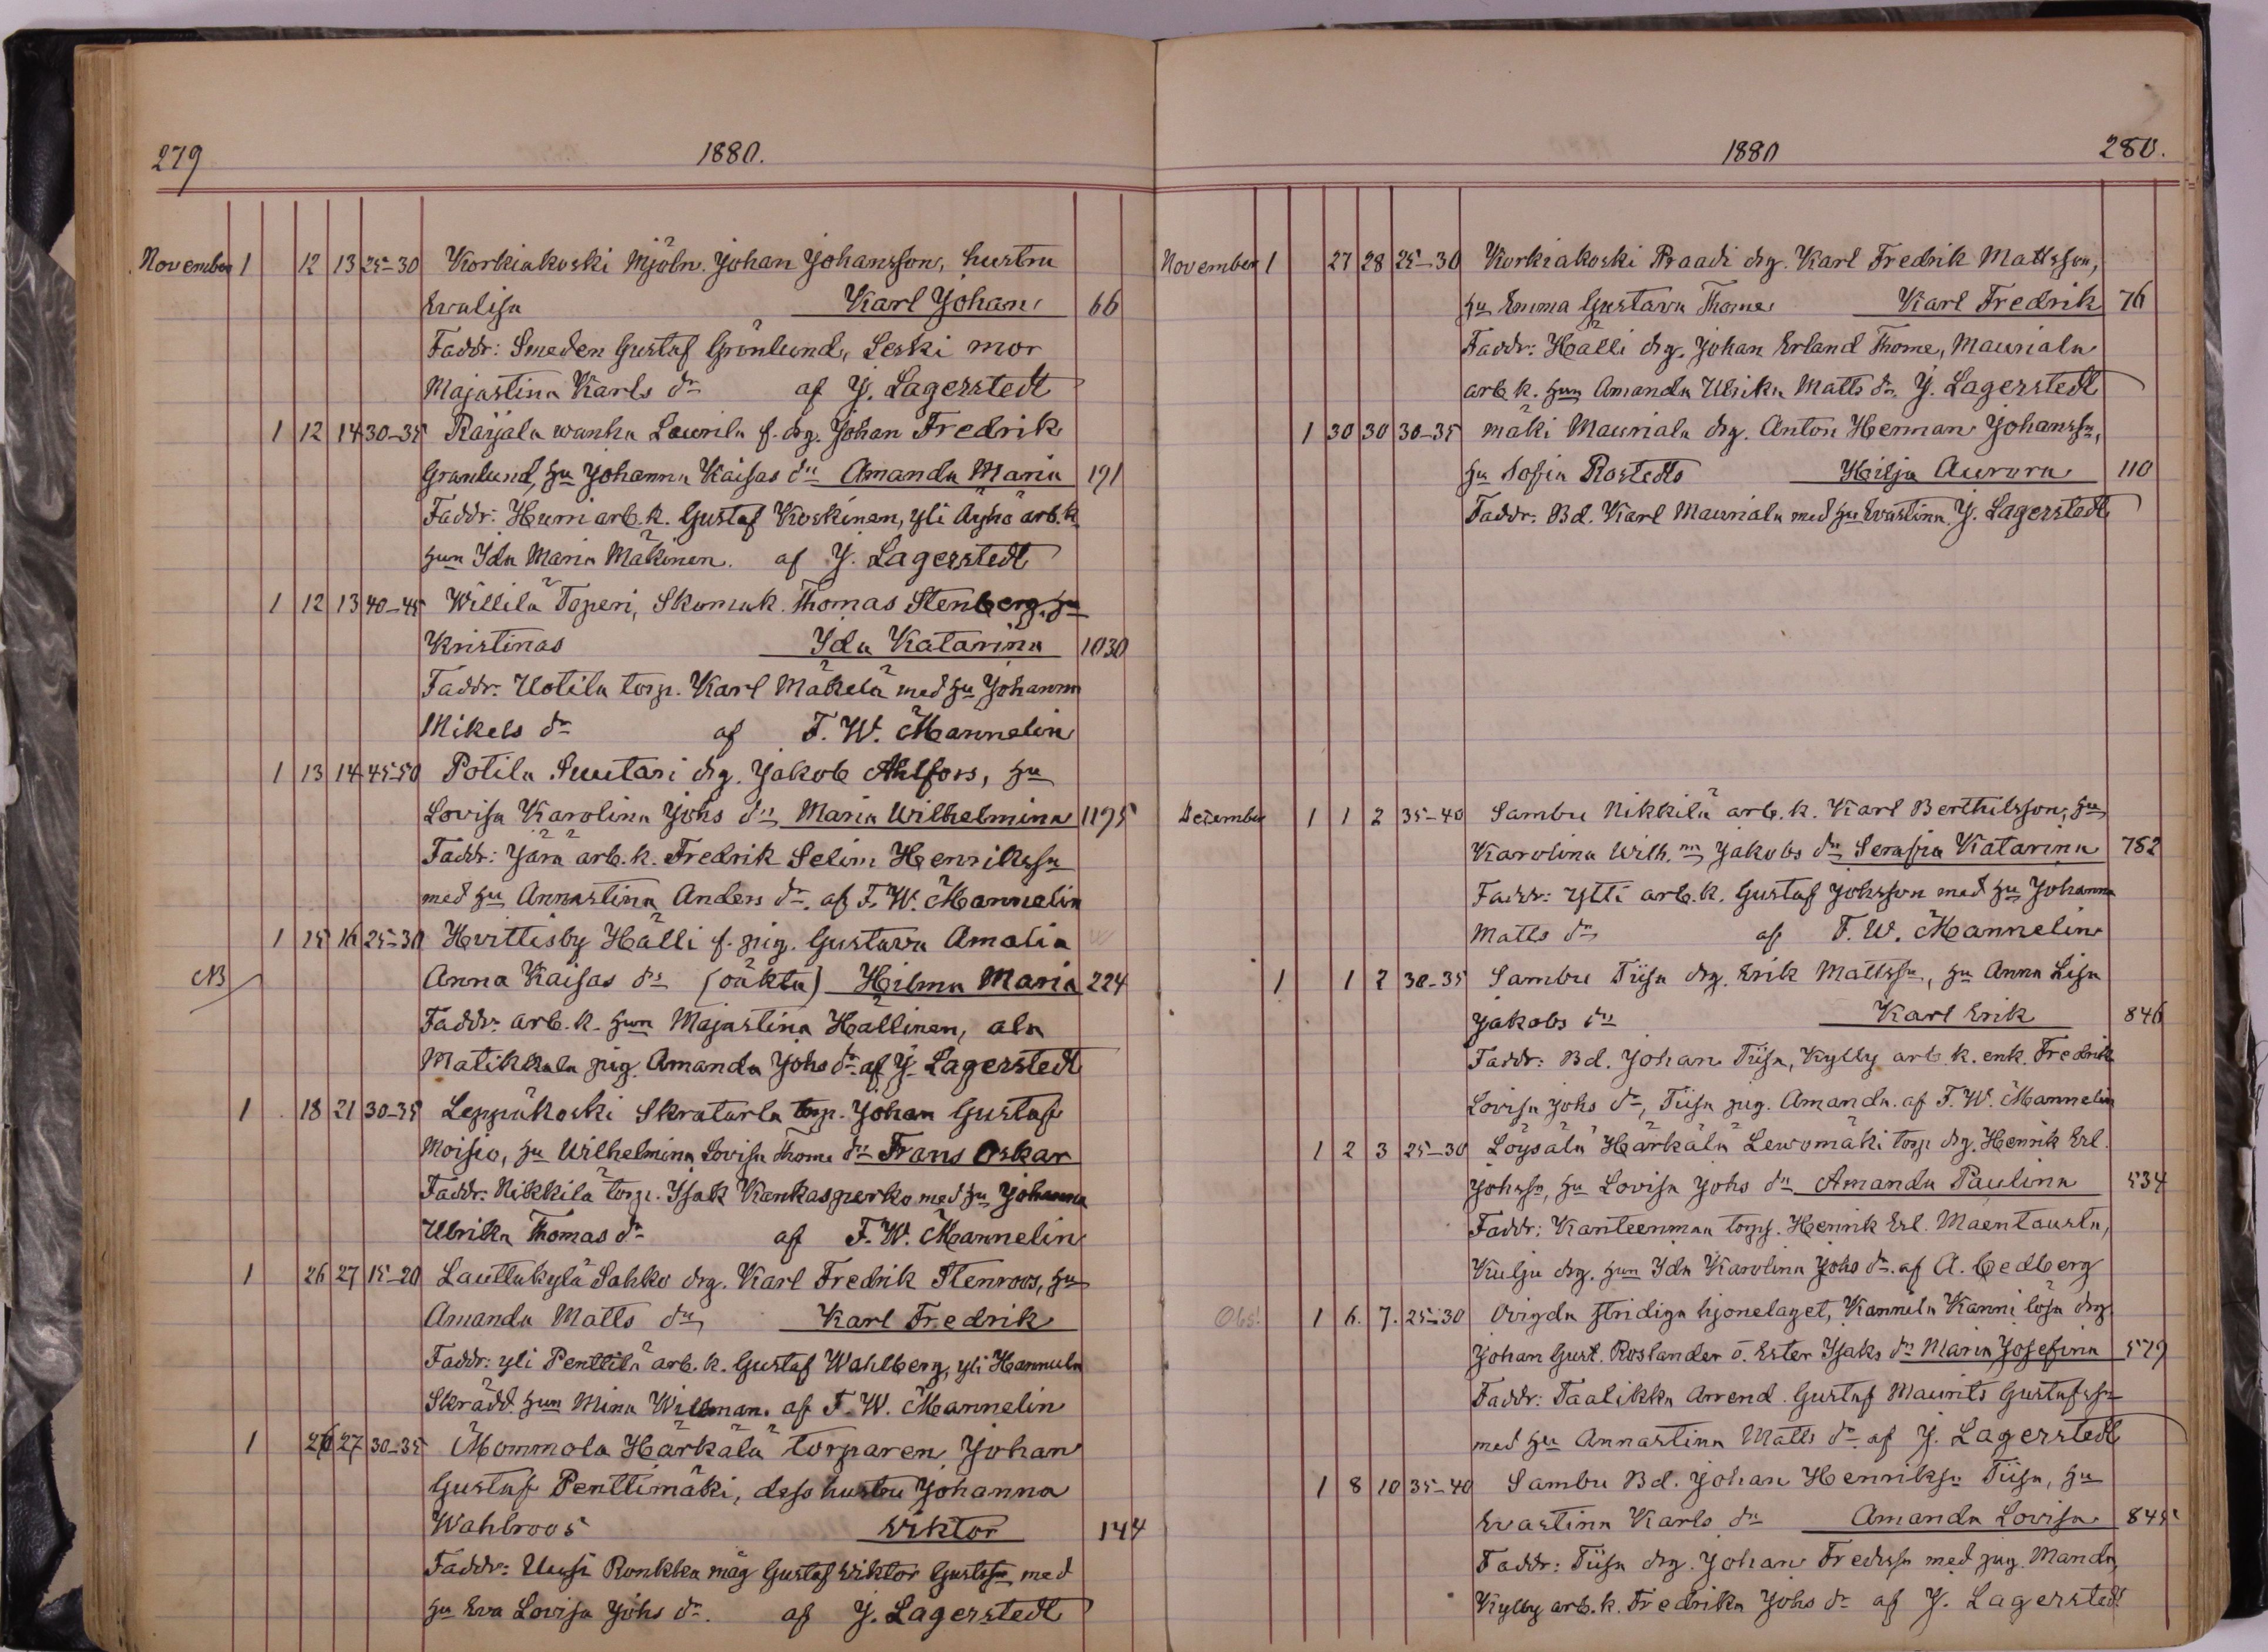 279 1880.
November 1 12 13 25-30 Korkiakoski Mjöln. Johan Johansson, hustru
Evalisa Karl Johan 66
Faddr: Smeden Gustaf Grönlund, Leski mor
Majastina Karls dr af J. Lagerstedt
1 12 14 30-35 Raijala wanha Laurila f. drg. Johan Fredrik
Granlund, hu Johanna Kaisas dr Amanda Maria 191
Faddr: Hurri arb. k. Gustaf Koskinen, yli Äyhö arb. k.
hun Ida Maria Mäkinen. af J. Lagerstedt
1 12 13 40-45 Willilä Toperi, Skomak. Thomas Stenberg, hu
Kristinas Ida Katarina 1030
Faddr: Uotila torp. Karl Mäkelä med hu Johanna
Mikels dr af F. W. Mannelin
1 13 14 45-50 Potila Suutari drg. Jakob Ahlfors, hu
Lovisa Karolina Johs dr Maria Wilhelmina 1195
Faddr: Järä arb. k. Fredrik Selim Henrikssn
med hu Annastina Anders dr. af F. W. Mannelin
1 15 16 25-30 Hvittisby Hälli f. pig. Gustava Amalia
NB Anna Kaisas dr (oäkta) Hilma Maria 224
Faddr: arb. k. hun Majastina Hällinen, ala
Matikkala pig. Amanda Johs dr. af J. Lagerstedt
1 18 21 30-35 Leppäkoski Skraturla torp. Johan Gustaf
Moisio, hu Wilhelmina Lovisa Thome dr Frans Oskar
Faddr: Nikkilä torp. Isak Kankasperko med hu Johanna
Ulrika Thomas dr af F. W. Mannelin
1 26 27 15-20 Lauttakylä Sahko drg. Karl Fredrik Stenroos, hu
Amanda Matts dr Karl Fredrik
Faddr: yli Penttilä arb. k. Gustaf Wahlberg, yli Hannula
Skrädd. hun Mina Willman. af F. W. Mannelin
1 26 27 30-35 Mommola Härkälä torparen Johan
Gustaf Penttimäki, dess hustru Johanna
Wahlroos Wiktor 144
Faddr: Uusi Ronkka måg Gustaf Wiktor Gustfsn med
hu Eva Lovisa Johs dr. af J. Lagerstedt
1880 280.
November 1 27 28 25-30 Korkiakoski Praadi drg. Karl Fredrik Mattsson,
hu Emma Gustava Thome Karl Fredrik 76
Faddr: Hälli drg. Johan Erland Thome, Mauriala
arb. k. hun Amanda Ulrika Matts dr. J. Lagerstedt
1 30 30 30-35 mäki Mauriala drg. Anton Herman Johanssn,
hu Sofia Rostedts Hilja Aurora 110
Faddr: Bd. Karl Mauriala med hu Evastina J. Lagerstedt
Dezember 1 1 2 35-40 Sambu Nikkilä arb. k. Karl Berthilsson, hu
Karolina Wilh.na Jakobs dr Serafia Katarina 782
Faddr: Ylli arb. k. Gustaf Johsson med hu Johanna
Matts dr af F. W. Mannelin
1 1 2 30-35 Sambu Tiisa drg. Erik Mattssn, hu Anna Lisa
Jakobs dr Karl Erik 846
Faddr: Bd. Johan Tiisa, Kylly arb. k. enk. Fredrik
Lovisa Johs dr, Tiisa pig. Amanda. af F. W. Mannelin
1 2 3 25-30 Löysälä Härkälä Lewomäki torp drg. Henrik Erl.
Johssn, hu Lovisa Johs dr Amanda Paulina 534
Faddr: Kanteenmaa torp. Henrik Erl. Maentausta,
Kulju drg. hun Ida Karolina Johs dr. af A. Cedberg
Obs! 1 6. 7. 25-30 Ovigda stridiga hjonelaget, Kannila Kanni lösa drg
Johan Gust. Roslander o. Ester Isaks dr Maria Josefina 579
Faddr: Taalikka Arrend. Gustaf Maurits Gustafssn
med hu Annastina Matts dr. af J. Lagerstedt
1 8 10 35-40 Sambu Bd. Johan Henrikss Tiisa, hu
Evastina Karls dr Amanda Lovisa 845
Faddr: Tiisa drg. Johan Fredssn med pig. Manda,
Kylly arb. k. Fredrika Johs dr af J. Lagerstedt